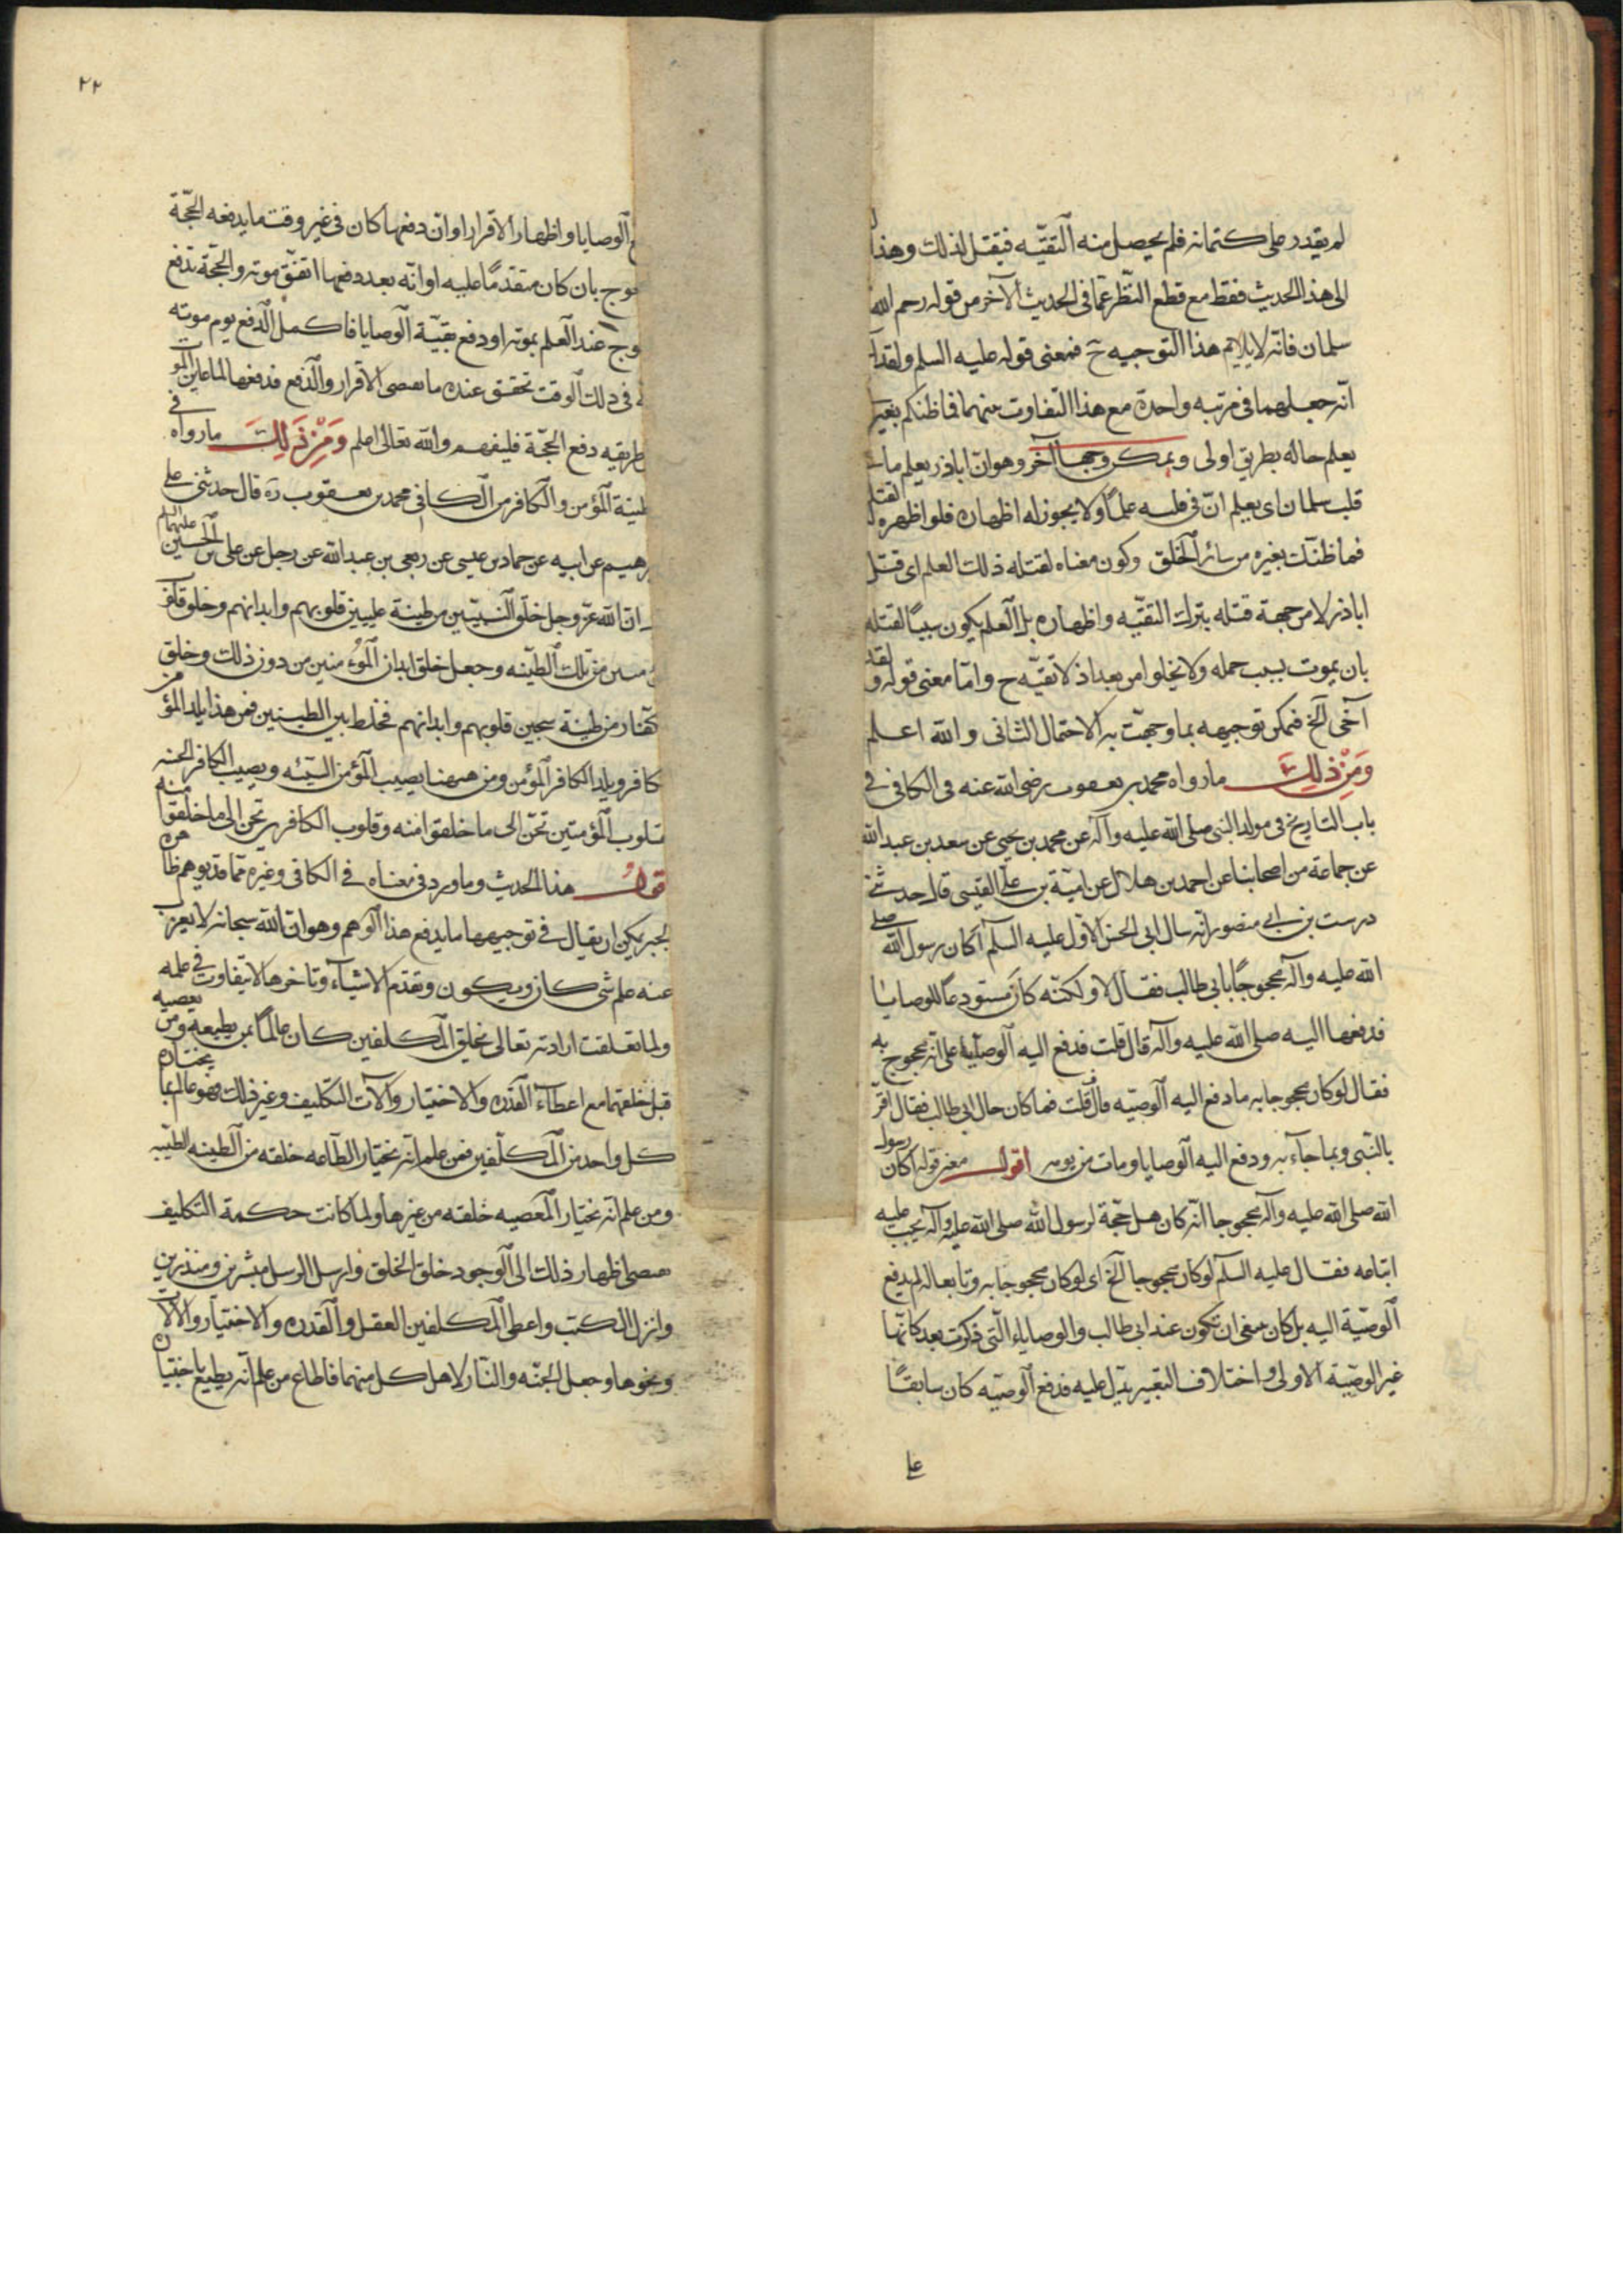 لم يقدر على كتمانه فلم يحصل منه التقيّه فيقتل لذلك وهذا
الى هذا الحديث فقط مع قطع النظر عمّا فى الحديث الآخر من قوله رحم الله
سلمان فانّه لا يلايم هذا التوجيه ح فمعنى قوله عليه السلم ولقد
انّه جعلهما فى مرتبه واحدة مع هذا التفاوت منهما فما ظنكم بغير
يعلم حاله بطريق اولى ويمكن وجها آخر وهو ان اباذر يعلم ما
قلب سلمان اى يعلم انّ فى قلبه علمًا ولا يجوز له اظهاره فلو اظهره لقتله
فما ظنّك بغيره من سائر الخلق وكون معناه لقتله ذلك العلم اى قتل
اباذر لا من جهة قتله بترك التقيّه واظهاره بل العلم يكون سببًا لقتله
بان يموت بسبب حمله ولا يخلوا من بعد اذ لا تقيّه ح وامّا معنى قوله ولقد
آخى الخ فيمكن توجيهه بما وجهّت به الاحتمال الثانى والله اعلم
ومن ذلك ما رواه محمد بن يعقوب رضى الله عنه فى الكافى فى
باب التاريخ فى مولد النبى صلى الله عليه وآله عن محمد بن يحيى عن سعد بن عبد الله
عن جماعة من اصحابنا عن احمد بن هلال عن امية بن على القيسى قال حدثنى
درست بن ابى منصور انه سال ابى الحسن الاول عليه السلم أكان رسول الله صلى
الله عليه وآله محجوجًا بابى طالب فقال لا ولكنّه كان مستودعًا للوصايا
فدفعها اليه صلى الله عليه وآله قال قلت فدفع اليه الوصايا على انه محجوج به
فقال لو كان محجوجا به ما دفع اليه الوصيّه قال قلت فما كان حال ابى طالب فقال اقرّ
بالنّبى وبما جاء به ودفع اليه الوصايا ومات من يومه اقول معنى قوله أكان رسول
الله صلى الله عليه وآله محجوجا انه كان هل حجّة لرسول الله صلى الله عليه وآله يجب عليه
اتباعه فقال عليه السلم لو كان محجوجا الخ اى لو كان محجوجا به وتابعا له لم يدفع
الوصيّة اليه بل كان ينبغى ان تكون عند ابى طالب والوصايا التى ذكرت بعد كانّها
غير الوصيّة الاولى واختلاف التعبير يدّل عليه فدفع الوصيّه كان سابقًا
على
٢٢
الوصايا واظهار الاقرار او انّ دفعها كان فى غير وقت ما يدفعه الحجّة
بان كان متقدمًا عليه او انّه بعد دفعها اتفق موته والحجّة تدفع
عند العلم بموته او دفع بقيّة الوصايا فاكمل الدفع يوم موته
فى ذلك الوقت تحقق عنده ما يقتضى الاقرار والدّفع فدفعها لما علمن الموت
طريقه دفع الحجّة فليفهم والله تعالى اعلم ومن ذلك ما رواه فى
طينة المؤمن والكافر من الكافى محمد بن يعقوب ره قال حدثنى على
عن ابيه عن حماد بن عيسى عن ربعى بن عبد الله عن رجل عن على بن الحسين عليهما السلم
ان الله عزّ وجل خلق النبيّين من طينة عليين قلوبهم وابدانهم وخلق قلوب
من تلك الطينه وجعل خلق ابدان المؤمنين من دون ذلك وخلق
من طينة سجين قلوبهم وابدانهم فخلط بين الطينتين فمن هذا يلد المؤمن
كافر ويلد الكافر المؤمن ومن ههنا يصيب المؤمن السيّئه ويصيب الكافر الحسنه
قلوب المؤمنين تحنّ الى ما خلقوا منه وقلوب الكافرين تحنّ الى ما خلقوا منه
هذا الحديث وما ورد فى معناه فى الكافى وغيره ممّا قد يوهم ظاهره
الجبر يمكن ان يقال فى توجيهها ما يدفع هذا الوهم وهو ان الله سبحانه لا يعزب
عنه علم شى كان ويكون وتقدّم الاشياء وتاخرها لا يتفاوت فى علمه
ولما تعلقت ارادته تعالى بخلق المكلفين كان عالمًا بمن يطيعه ومن يعصيه
قبل خلقهما مع اعطاء القدره والاختيار وآلات التكليف وغير ذلك فهو عالم بما يختاره
كل واحد من المكلّفين فمن علم انّه يختار الطّاعه خلقه من الطينه الطيّبه
ومن علم انّه يختار المعصيه خلقه من غيرها ولما كانت حكمة التكاليف
تقتضى اظهار ذلك الى الوجود خلق الخلق وارسل الرسل مبشرين ومنذرين
وانزل الكتب واعطى المكلفين العقل والقدره والاختيار والآلات
ونحوها وجعل الجنّه والنّار لاهل كل منهما فاطاع من علم انّه يطيع باختياره